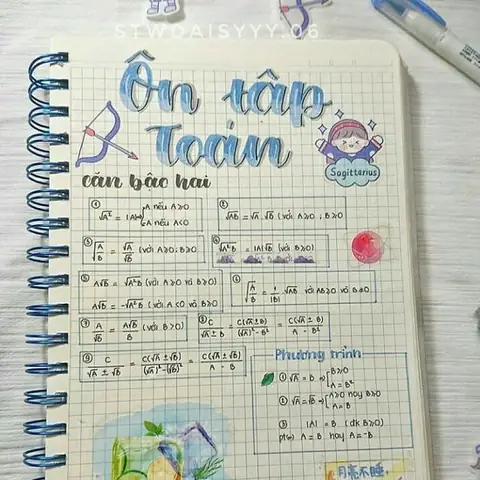 STWDAISYYY.06
Ôn tập
Toán
căn bậc hai
Sagittarius
① √A² = |A| A nếu A≥0
-A nếu A<0
② √AB = √A . √B (với A≥0 ; B≥0)
③ √A/B = √A/√B (với A≥0; B>0)
④ √A²B = |A|√B (với B≥0)
⑤ A√B = √A²B (với A≥0 và B≥0)
A√B = -√A²B (với A<0 và B≥0)
⑥ √A/B = 1/|B| . √AB với AB≥0 và B≠0
⑦ A/√B = A√B/B (với B>0)
⑧ C/√A ± B = C(√A ± B)/(√A)² - B² = C(√A ± B)/A - B²
⑨ C/√A ± √B = C(√A ± √B)/(√A)²-(√B)² = C(√A ± √B)/A - B
Phương trình
① √A = B => B≥0
A = B²
② √A = √B => A≥0 hay B≥0
A = B
③ |A| = B (đk B≥0)
pt <=> A = B hay A = -B
月亮不睡